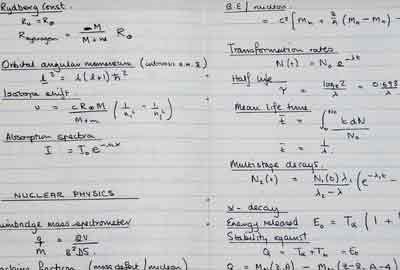 Rydberg Const.
R₀ = R∞
R_hydrogen = ∞M / M+m R∞
Orbital angular momentum
l² = l(l+1)ħ²
Isotope shift.
υ = cR∞M / M+m (1/n₁² - 1/n₂²)
Absorption spectra
I = I₀e
NUCLEAR PHYSICS
Bainbridge mass spectrometer
q/M = 2V / B²DS.
fraction (mass defect/nucleon)
B.E/nucleon
= c² [Mn + Z/A (MH - Mn) -
Transformation rates
N(t) = N₀e^-λt
Half life
τ = loge2 / λ = 0.693
Mean life time
t̄ = ∫ t dN / N₀
t̄ = 1/λ
Multistage decays.
N₂(t) = N₁(0)λ₁ / λ₂ - λ (e^-λ₁t -
α - decay
Energy released E₀ = Tα (1 +
Stability against
Q = Tα + Tb = E₀
Q = M(Z,A) - M(Z-2, A-4)